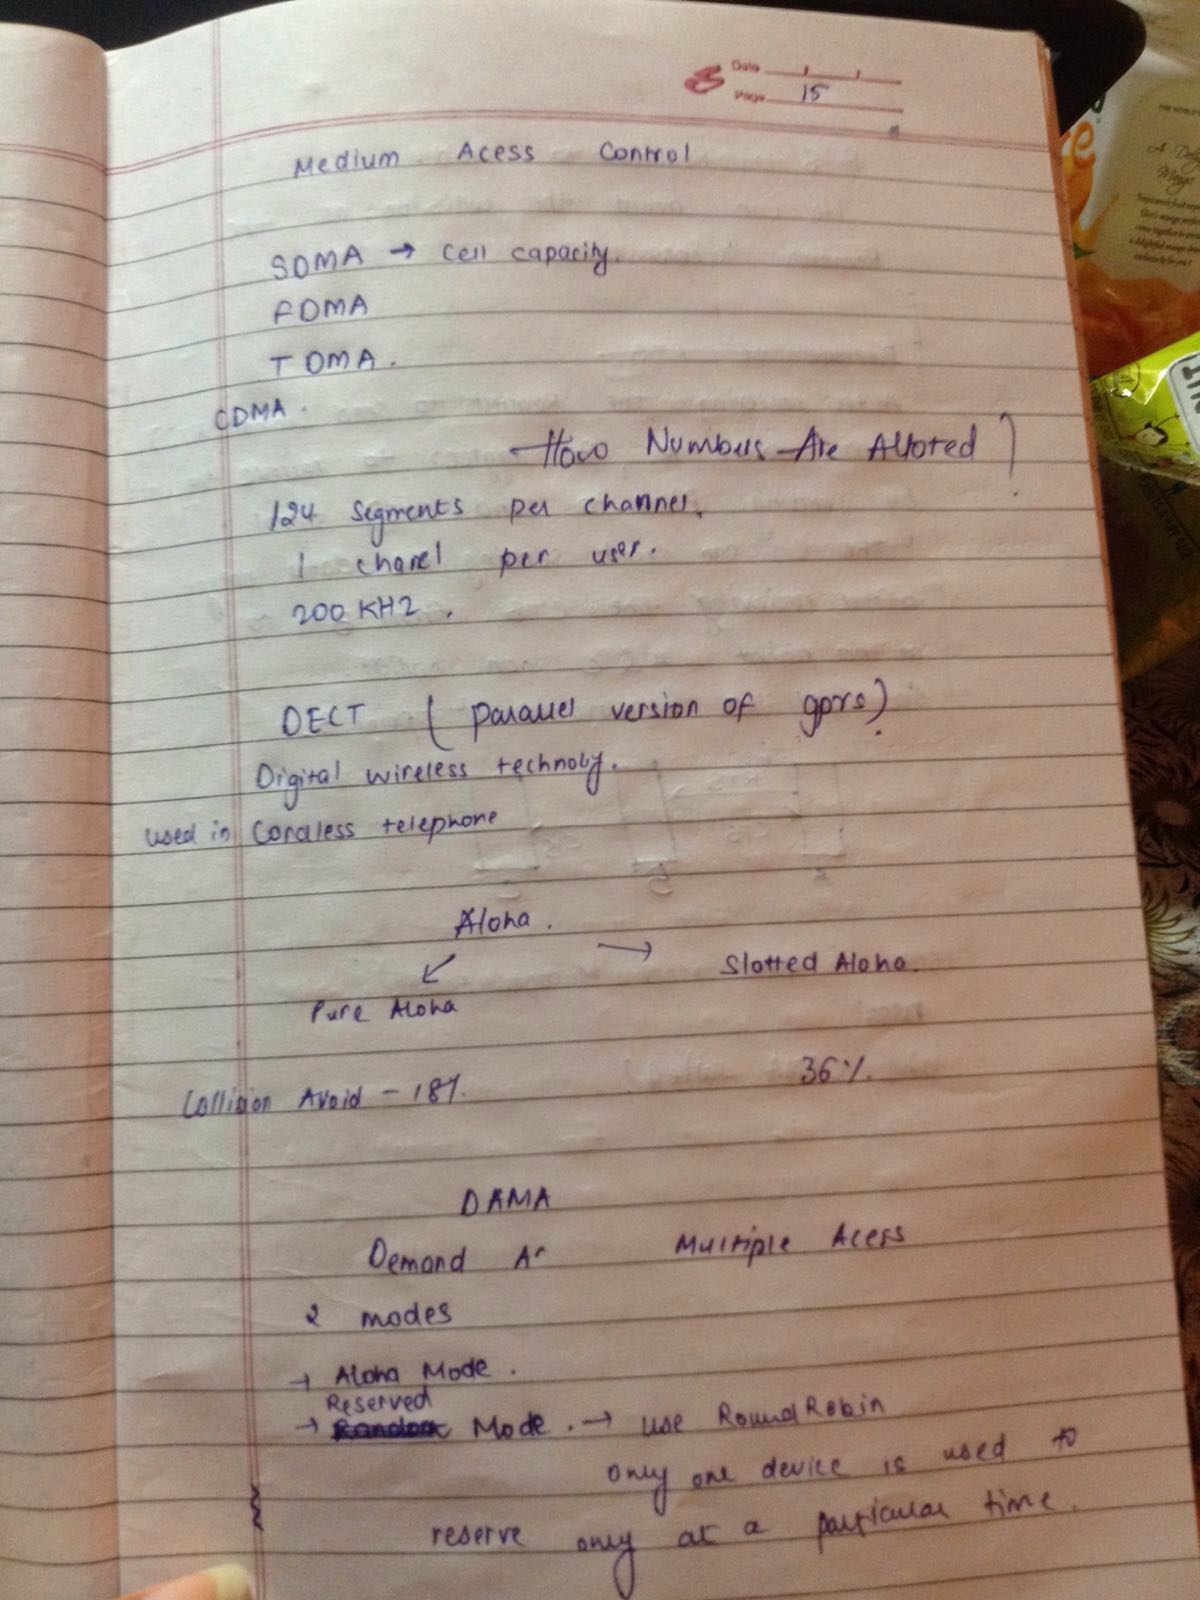 Date
Page 15
Medium Acess Control
SDMA → Cell capacity.
FDMA
TDMA.
CDMA.
How Numbers Are Alloted ?
124 segments per channel.
1 chanel per user.
200 KHZ.
DECT ( parallel version of gprs)
Digital wireless technoly.
used in Cordless telephone
Aloha.
↙ →
Slotted Aloha.
Pure Aloha
Collision Avoid - 18%. 36%.
DAMA
Demand As Multiple Acess
2 modes
→ Aloha Mode.
Reserved
→ Mode. → use Round Robin
only one device is used to
reserve only at a particular time.
A